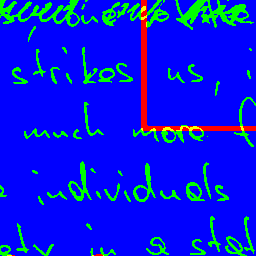 strikes us, i
much more
individuals
ety in a stat